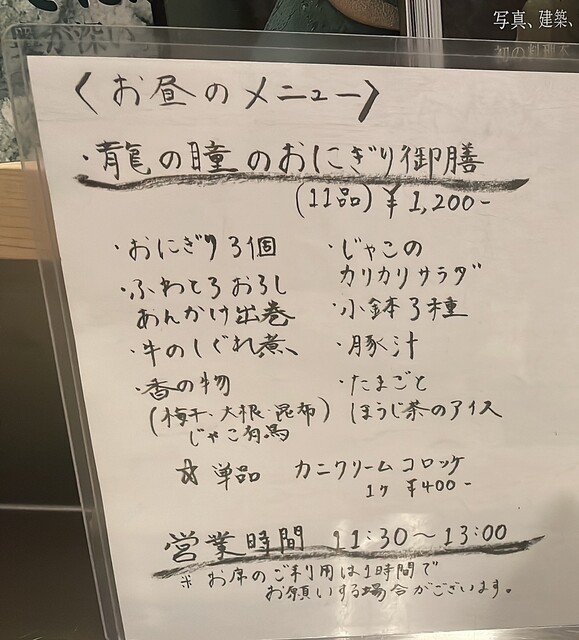 写真、建築、
初の料理本
〈お昼のメニュー〉
・龍の瞳のおにぎり御膳
(11品)￥1,200-
・おにぎり3個
・ふわとろおろし
あんかけ出巻
・牛のしぐれ煮、
・香の物
(梅干、大根・昆布)
じゃこ有馬
・じゃこの
カリカリサラダ
・小鉢3種
・豚汁
・たまごと
ほうじ茶のアイス
☆単品 カニクリームコロッケ
1ケ ￥400-
営業時間 11:30〜13:00
※お席のご利用は1時間で
お願いする場合がございます。